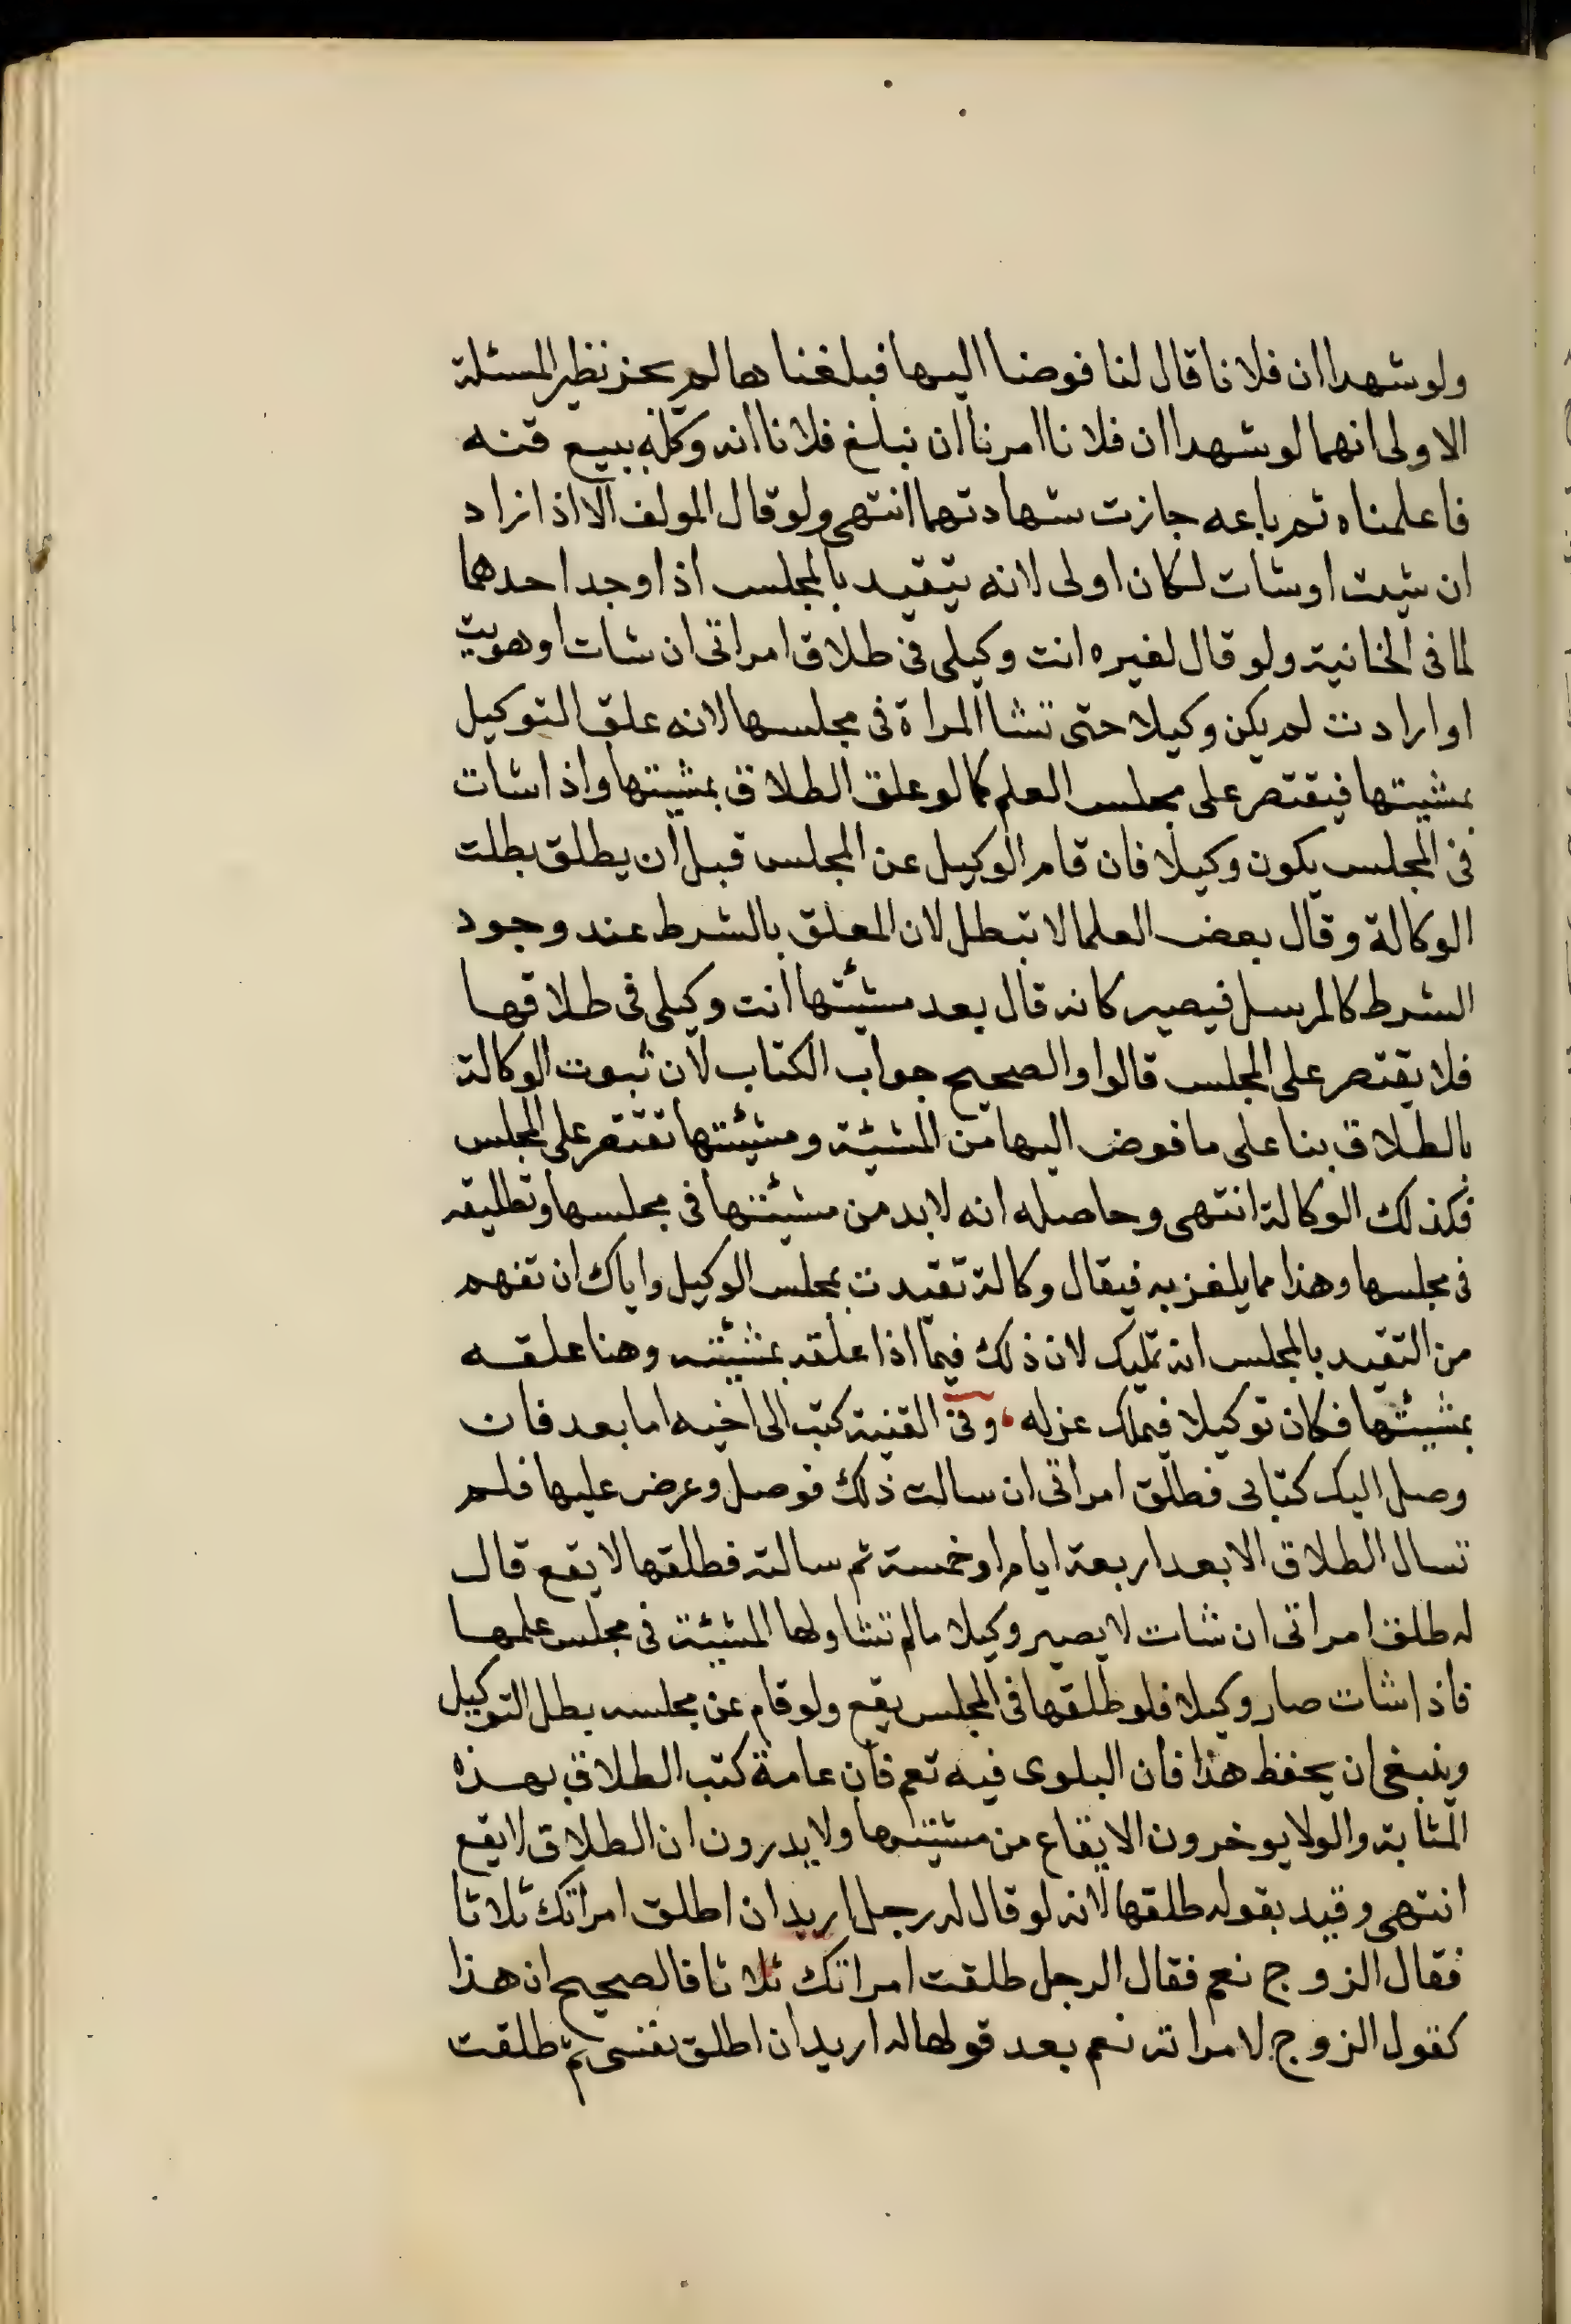 ولو شهدا ان فلانا قال لنا فوضا اليها فبلغناها لم يجز نظير المسئلة
الاولى انهما لو شهدا ان فلانا امرنا ان نبلغ فلانا انه وكله ببيع قنه
فاعلمناه ثم باعه جازت شهادتهما انتهى ولو قال المولف الا اذا زاد
ان شيت او شات لكان اولى لانه يتقيد بالمجلس اذا وجد احدهما
لما فى الخانية ولو قال لغيره انت وكيلى فى طلاق امراتى ان شات او هويت
او ارادت لم يكن وكيلا حتى تشا المراة فى مجلسها لانه علق التوكيل
بمشيتها فيقتصر على مجلس العلم كما لو علق الطلاق بمشيتها واذا شات
فى المجلس يكون وكيلا فان قام الوكيل عن المجلس قبل ان يطلق بطلت
الوكالة وقال بعض العلما لا تبطل لان المعلق بالشرط عند وجود
الشرط كالمرسل فيصير كانه قال بعد مشيئتها انت وكيلى فى طلاقها
فلا يقتصر على المجلس قالوا والصحيح جواب الكتاب لان ثبوت الوكالة
بالطلاق بنا على ما فوض اليها من المشية ومشيئتها تقتصر على المجلس
فكذلك الوكالة انتهى وحاصله انه لابد من مشيئتها فى مجلسها وتطليقه
فى مجلسها وهذا مما يلغز به فيقال وكالة تقيدت بمجلس الوكيل واياك ان تفهم
من التقيد بالمجلس انه تمليك لان ذلك فيما اذا علقه بمشيئته وهنا علقه
بمشيئتها فكان توكيلا فيملك عزله وفى القنية كتب الى اخيه اما بعد فان
وصل اليك كتابى فطلق امراتى ان سالت ذلك فوصل وعرض عليها فلم
تسال الطلاق الا بعد اربعة ايام او خمسة ثم سالته فطلقها لا يقع قال
له طلق امراتى ان شات لا يصير وكيلا مالم تشا ولها المشيئة فى مجلس علمها
فاذا شات صار وكيلا فلو طلقها فى المجلس يقع ولو قام عن مجلسه بطل التوكيل
وينبغى ان يحفظ هذا فان البلوى فيه تعم فان عامة كتب الطلاق بهذه
المثابة والولا يوخرون الايقاع من مشيئتها ولا يدرون ان الطلاق لا يقع
انتهى وقيد بقوله طلقها لانه لو قال له رجل اريد ان اطلق امراتك ثلاثا
فقال الزوج نعم فقال الرجل طلقت امراتك ثلاثا فالصحيح ان هذا
كقول الزوج لامراته نعم بعد قولها له اريد ان اطلق نفسى ثم طلقت